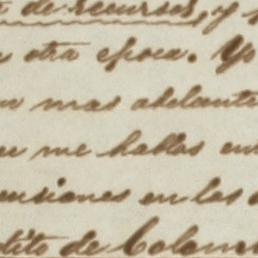 de recursos, y
otra epoca. Yo
mas adelante
me hablas en
ensiones en las
dito de Colom